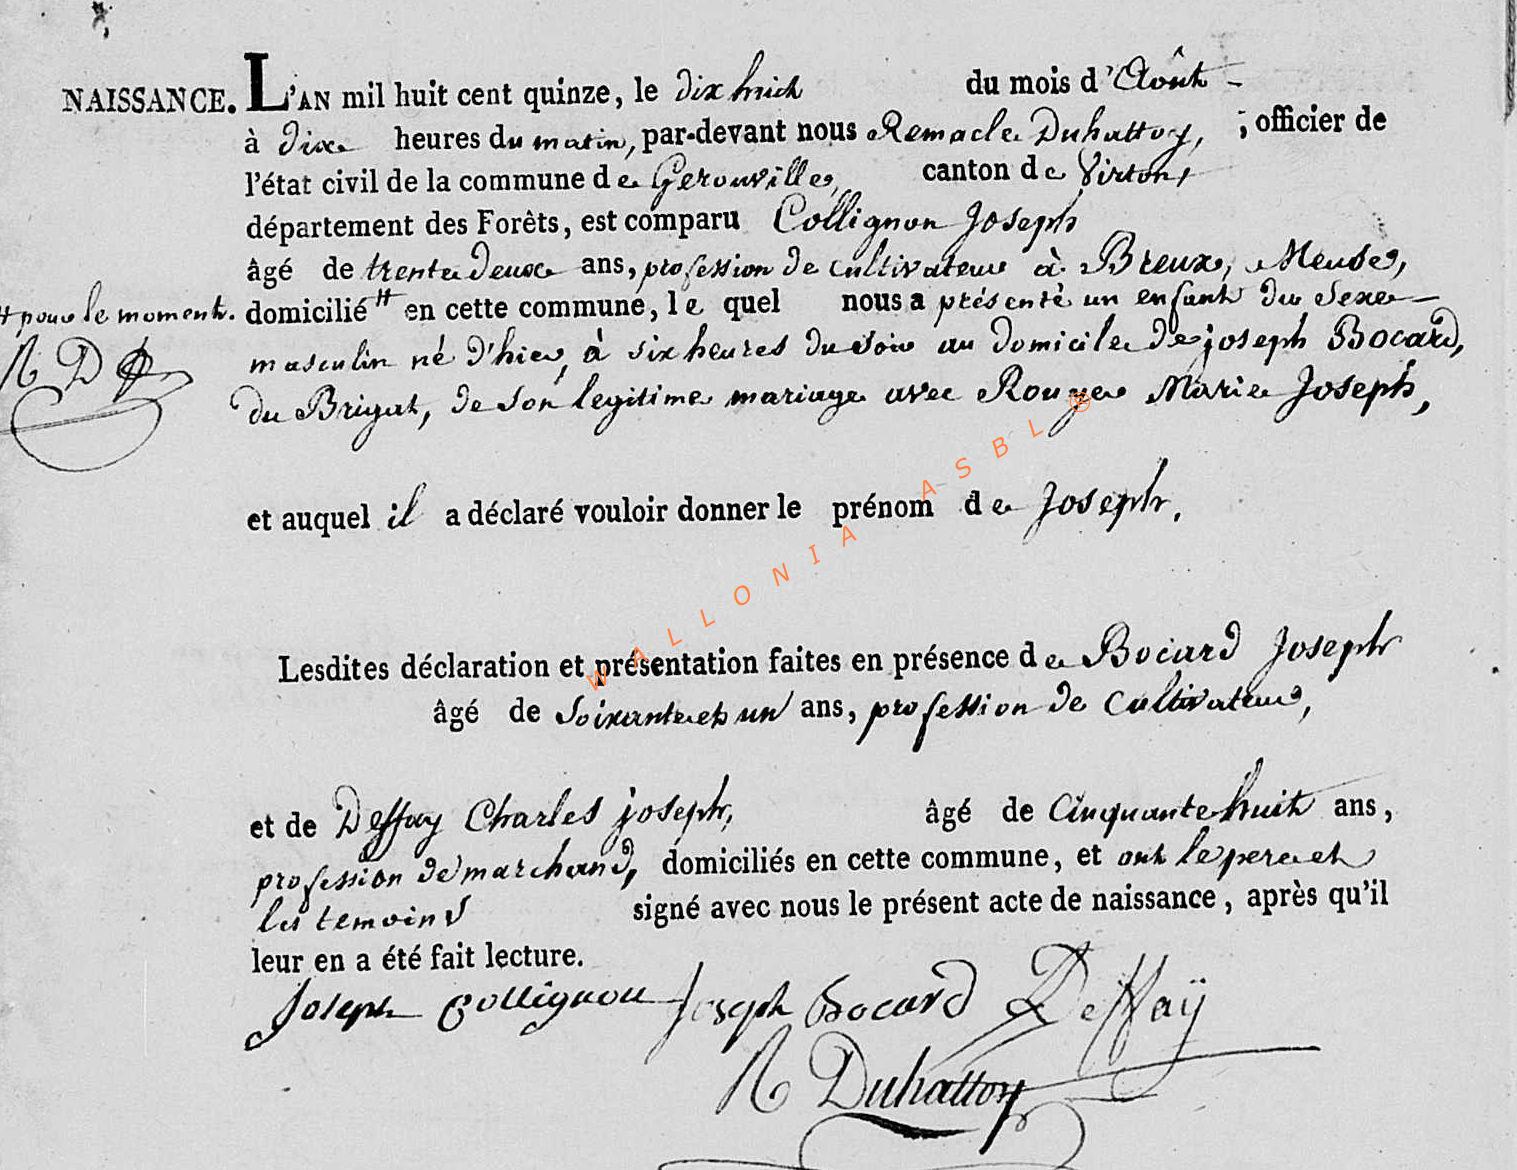 NAISSANCE. L'AN mil huit cent quinze, le dix huit du mois d'Août
à dix heures du matin, par-devant nous Remacle Duhattoy, ; officier de
l'état civil de la commune de Gerouville, canton de Virton,
département des Forêts, est comparu Collignon Joseph
âgé de trente deux ans, profession de cultivateur à Breux, Meuse,
# pour le moment. domicilié # en cette commune, le quel nous a présenté un enfant du Sexe
masculin né d'hier, à six heures du soir au domicile de joseph Bocard,
R D
du Brigat, de Son legitime mariage avec Rouge Marie Joseph,
et auquel il a déclaré vouloir donner le prénom de Joseph.
Lesdites déclaration et présentation faites en présence de Bocard Joseph
âgé de Soixante et un ans, profession de Cultivateur,
et de Deffay Charles joseph, âgé de Cinquante huit ans,
profession de marchand, domiciliés en cette commune, et ont le pere et
les temoins signé avec nous le présent acte de naissance, après qu'il
leur en a été fait lecture.
Joseph Collignon Joseph Bocard Deffaÿ
R Duhattoy
WALLONIA ASBL ©